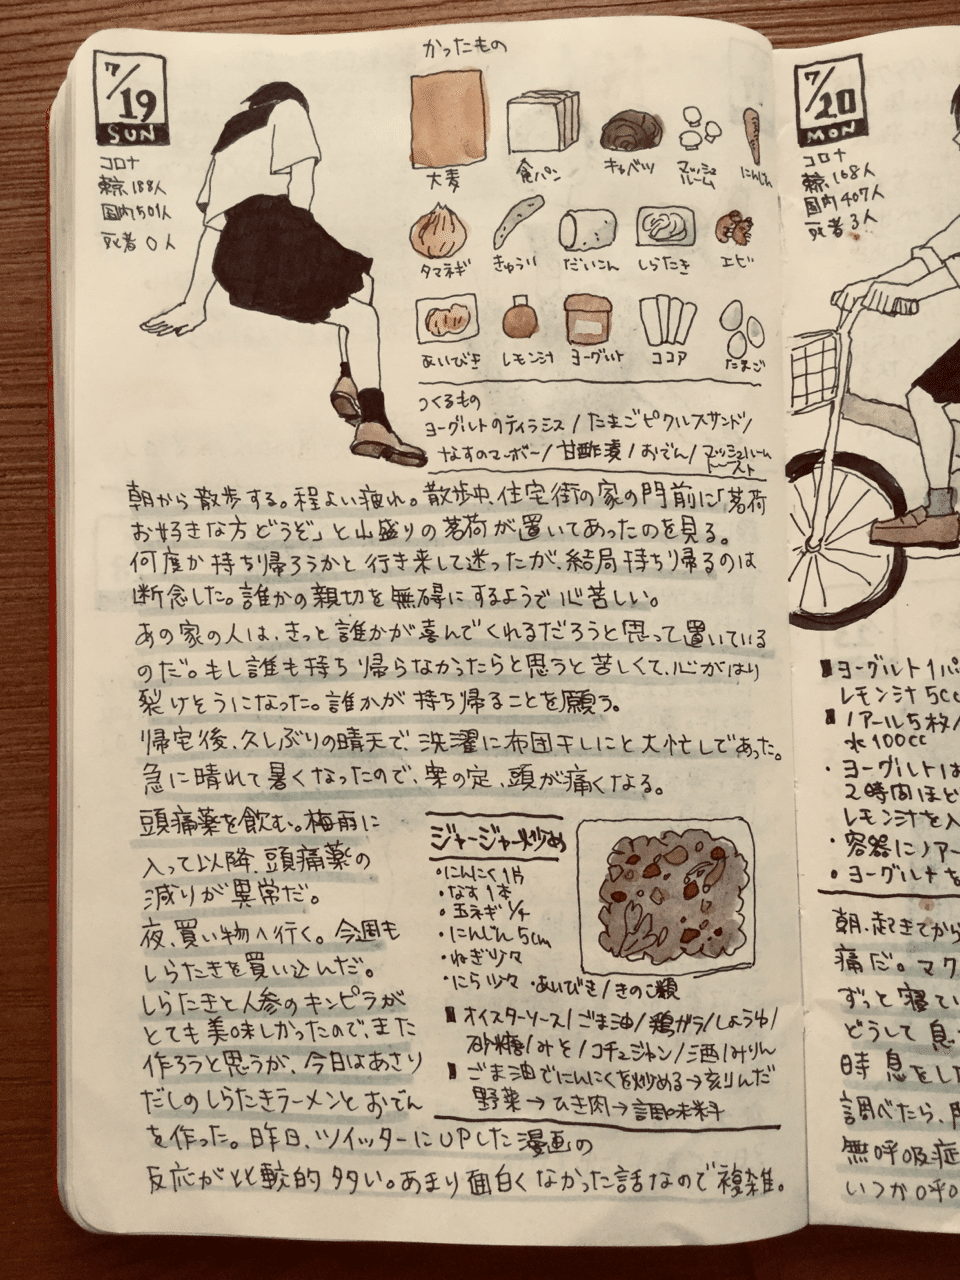 7/19
SUN
コロナ
東京188人
国内501人
死者 0人
かったもの
大麦
食パン
キャベツ
マッシュ
ルーム
にんじん
タマネギ
きゅうり
だいこん
しらたき
エビ
あいびき
レモン汁
ヨーグルト
ココア
たまご
つくるもの
ヨーグルトのティラミス/たまごピクルスサンド/
なすのマーボー/甘酢漬/おでん/マッシュルーム
トースト
朝から散歩する。程よい疲れ。散歩中、住宅街の家の門前に「茗荷
お好きな方どうぞ」と山盛りの茗荷が置いてあったのを見る。
何度か持ち帰ろうかと行き来して迷ったが、結局持ち帰るのは
断念した。誰かの親切を無碍にするようで心苦しい。
あの家の人は、きっと誰かが喜んでくれるだろうと思って置いている
のだ。もし誰も持ち帰らなかったらと思うと苦しくて、心がはり
裂けそうになった。誰かが持ち帰ることを願う。
帰宅後、久しぶりの晴天で、洗濯に布団干しにと大忙しであった。
急に晴れて暑くなったので、案の定、頭が痛くなる。
頭痛薬を飲む。梅雨に
入って以降、頭痛薬の
減りが異常だ。
夜、買い物へ行く。今週も
しらたきを買い込んだ。
しらたきと人参のキンピラが
とても美味しかったので、また
作ろうと思うが、今日はあさり
だしのしらたきラーメンとおでん
を作った。昨日、ツイッターにUPした漫画の
反応がとと較的多い。あまり面白くなかった話なので複雑。
ジャージャー炒め
・にんにく1片
・なす1本
・玉ネギ1/4
・にんじん5cm
・ねぎ少々
・にら少々 ・あいびき/きのこ類
オイスターソース/ごま油/鶏ガラ/しょうゆ/
砂糖/みそ/コチュジャン/酒/みりん
ごま油でにんにくを炒める→刻んだ
野菜→ひき肉→調味料
7/20
MON
コロナ
東京168人
国内407人
死者3人
ヨーグルト1パ
レモン汁5cc
ノアール5枚/
水100cc
・ヨーグルトは
2時間ほど
レモン汁を入
・容器にノアー
・ヨーグルトを
朝、起きてから
痛だ。マク
ずっと寝てい
どうして息
時 息をした
調べたら、
無呼吸症
いつか呼